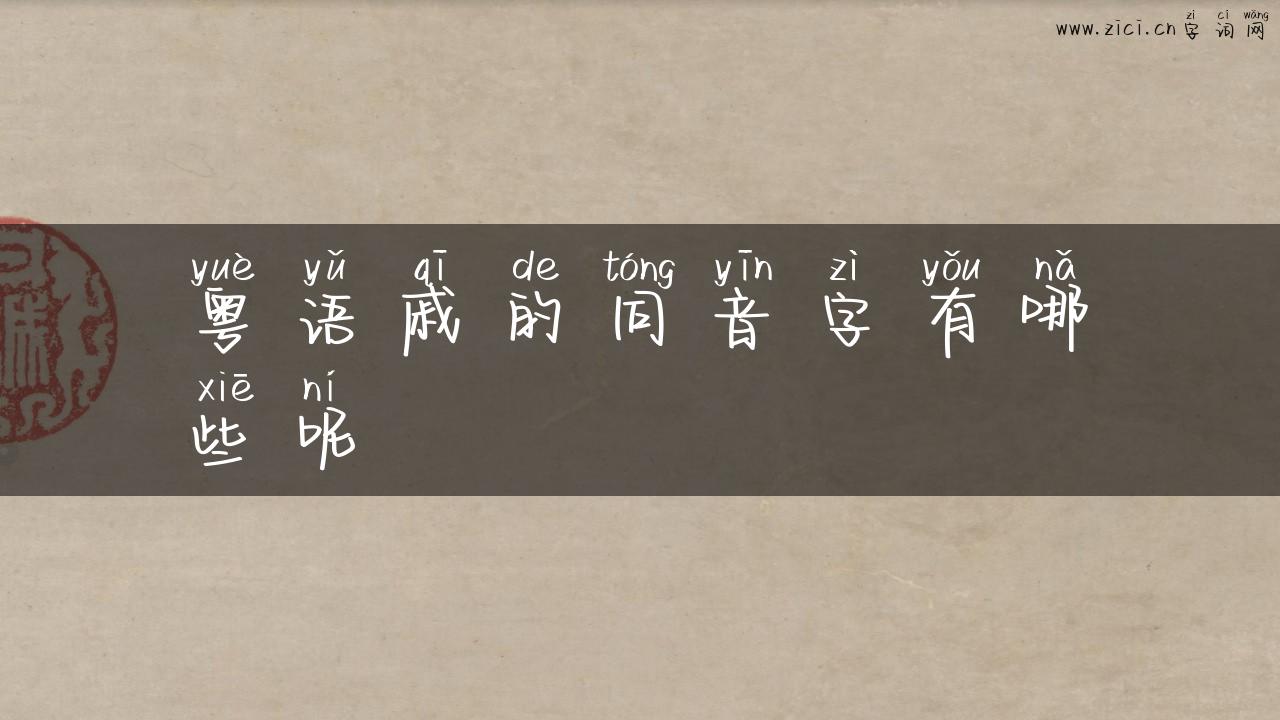 zì cí wǎng
www.zici.cn 字词网
yuè yǔ qī de tóng yīn zì yǒu nǎ
粤语戚的同音字有哪
xiē ní
些呢